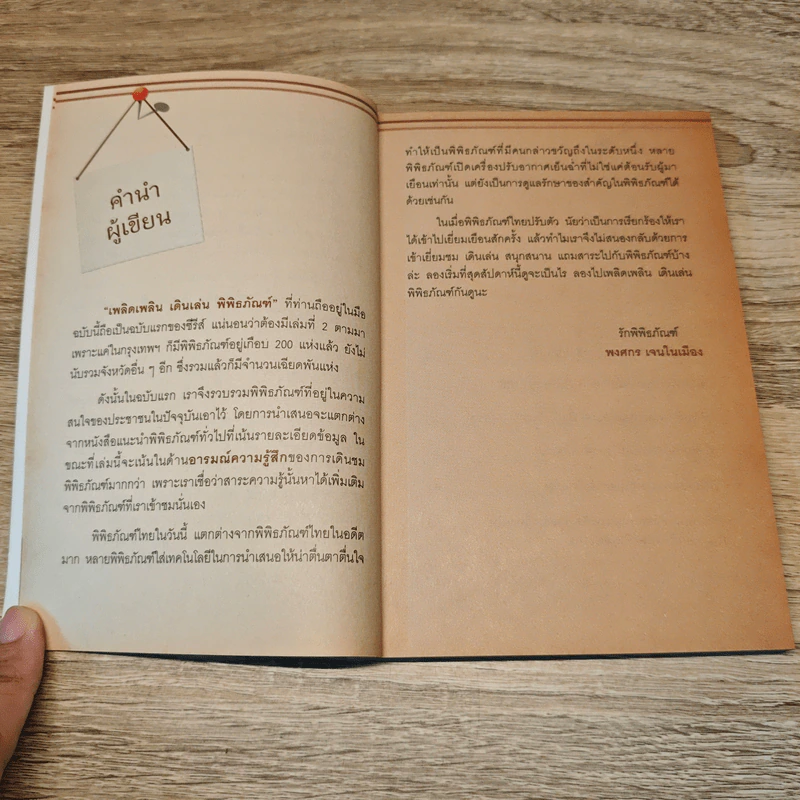 คำนำ
ผู้เขียน
"เพลิดเพลิน เดินเล่น พิพิธภัณฑ์" ที่ท่านถืออยู่ในมือ
ฉบับนี้ถือเป็นฉบับแรกของซีรีส์ แน่นอนว่าต้องมีเล่มที่ 2 ตามมา
เพราะแค่ในกรุงเทพฯ ก็มีพิพิธภัณฑ์อยู่เกือบ 200 แห่งแล้ว ยังไม่
นับรวมจังหวัดอื่น ๆ อีก ซึ่งรวมแล้วก็มีจำนวนเฉียดพันแห่ง
ดังนั้นในฉบับแรก เราจึงรวบรวมพิพิธภัณฑ์ที่อยู่ในความ
สนใจของประชาชนในปัจจุบันเอาไว้ โดยการนำเสนอจะแตกต่าง
จากหนังสือแนะนำพิพิธภัณฑ์ทั่วไปที่เน้นรายละเอียดข้อมูล ใน
ขณะที่เล่มนี้จะเน้นในด้านอารมณ์ความรู้สึกของการเดินชม
พิพิธภัณฑ์มากกว่า เพราะเราเชื่อว่าสาระความรู้นั้นหาได้เพิ่มเติม
จากพิพิธภัณฑ์ที่เราเข้าชมนั่นเอง
พิพิธภัณฑ์ไทยในวันนี้ แตกต่างจากพิพิธภัณฑ์ไทยในอดีต
มาก หลายพิพิธภัณฑ์ใส่เทคโนโลยีในการนำเสนอให้น่าตื่นตาตื่นใจ
ทำให้เป็นพิพิธภัณฑ์ที่มีคนกล่าวขวัญถึงในระดับหนึ่ง หลาย
พิพิธภัณฑ์เปิดเครื่องปรับอากาศเย็นฉ่ำที่ไม่ใช่แค่ต้อนรับผู้มา
เยือนเท่านั้น แต่ยังเป็นการดูแลรักษาของสำคัญในพิพิธภัณฑ์ได้
ด้วยเช่นกัน
ในเมื่อพิพิธภัณฑ์ไทยปรับตัว นัยว่าเป็นการเรียกร้องให้เรา
ได้เข้าไปเยี่ยมเยือนสักครั้ง แล้วทำไมเราจึงไม่สนองกลับด้วยการ
เข้าเยี่ยมชม เดินเล่น สนุกสนาน แถมสาระไปกับพิพิธภัณฑ์บ้าง
ล่ะ ลองเริ่มที่สุดสัปดาห์นี้ดูจะเป็นไร ลองไปเพลิดเพลิน เดินเล่น
พิพิธภัณฑ์กันดูนะ
รักพิพิธภัณฑ์
พงศกร เจนในเมือง